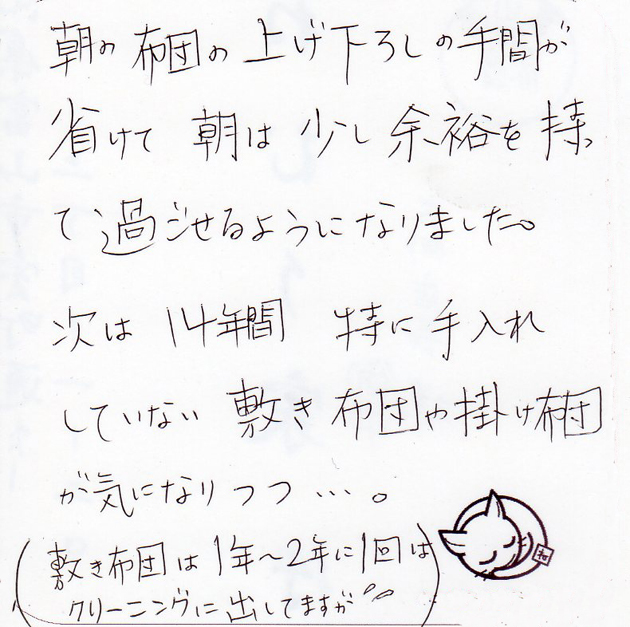 朝の布団の上げ下ろしの手間が
省けて 朝は少し余裕を持っ
て過ごせるようになりました。
次は14年間 特に手入れ
していない敷き布団や掛け布団
が気になりつつ…。
(敷き布団は1年～2年に1回は
クリーニングに出してますが)
和